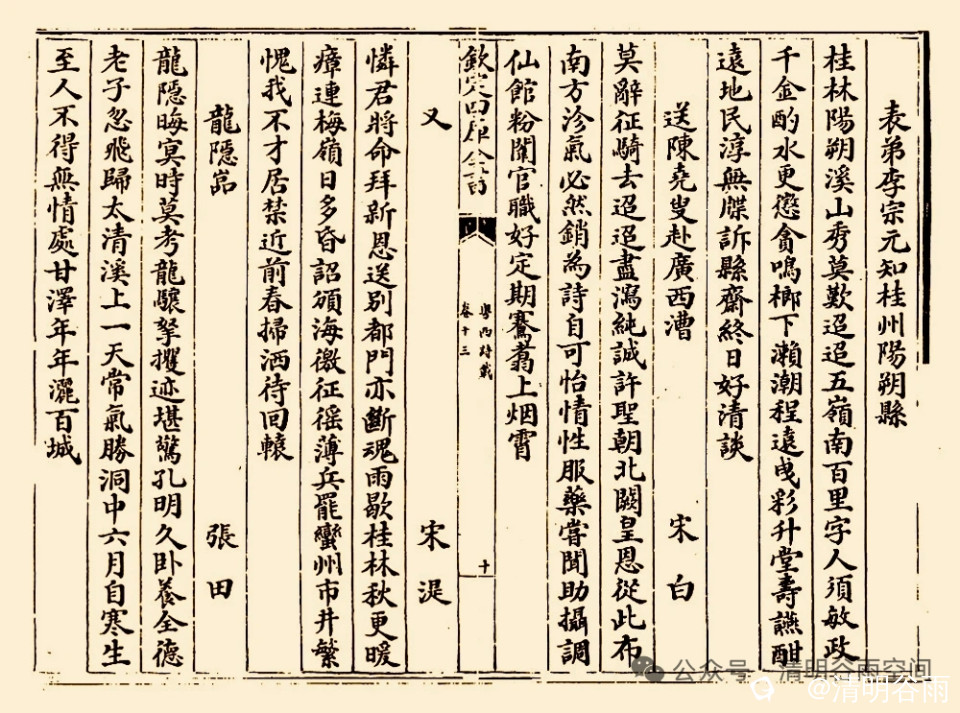 表弟李宗元知桂州陽朔縣
桂林陽朔溪山秀莫歎迢迢五嶺南百里字人須敏政
千金酌水更懲貪鳴榔下瀨潮程遠曵彩升堂壽讌酣
遠地民淳無牒訴縣齋終日好清談
送陳堯叟赴廣西漕 宋白
莫辭征騎去迢迢盡瀉純誠許聖朝北闕皇恩從此布
南方沴氣必然銷為詩自可怡情性服藥嘗聞助攝調
仙館粉闈官職好定期騫翥上烟霄
欽定四庫全書
粤西詩載
卷十三
十
又 宋湜
憐君將命拜新恩送别都門亦斷魂雨歇桂林秋更暖
瘴連梅嶺日多昏詔頒海徼征徭薄兵罷蠻州市井繁
愧我不才居禁近前春掃洒待回轅
龍隱嵓 張田
龍隱晦冥時莫考龍驤拏攫迹堪驚孔明久卧養全德
老子忽飛歸太清溪上一天常氣勝洞中六月自寒生
至人不得無情處甘澤年年灑百城
公众号·清明谷雨空间
@清明谷雨